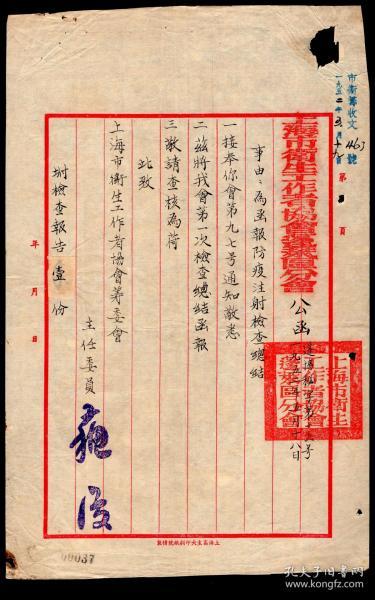 市衛籌收文 463 號
一九五二年 月 日
第 頁
上海市衛生工作者協會蓬萊區分會
公函
一九五二年五月十八日
上海市衛生工作者協會蓬萊區分會
事由：為函報防疫注射檢查總結
一接奉你會第九七号通知敬悉
二茲將我會第一次檢查總結函報
三敬請查核為荷
此致
上海市衛生工作者協會籌委會
主任委員
坿檢查報告壹份
年 月 日
00037
孔夫子旧书网